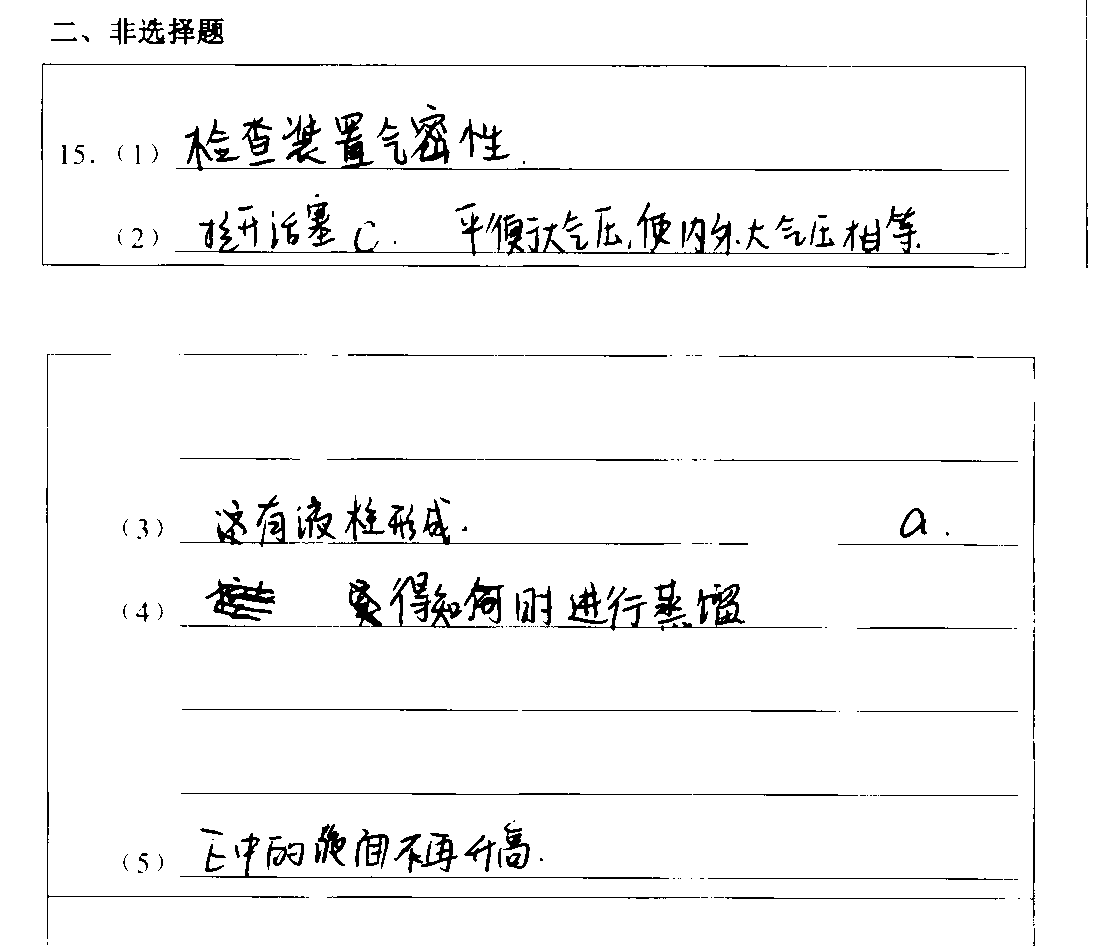 二、非选择题
15.(1) 检查装置气密性.
(2) 打开活塞 C. 平衡大气压,使内外大气压相等.
(3) 没有液柱形成. a.
(4) 得知何时进行蒸馏
(5) E中的液面不再升高.